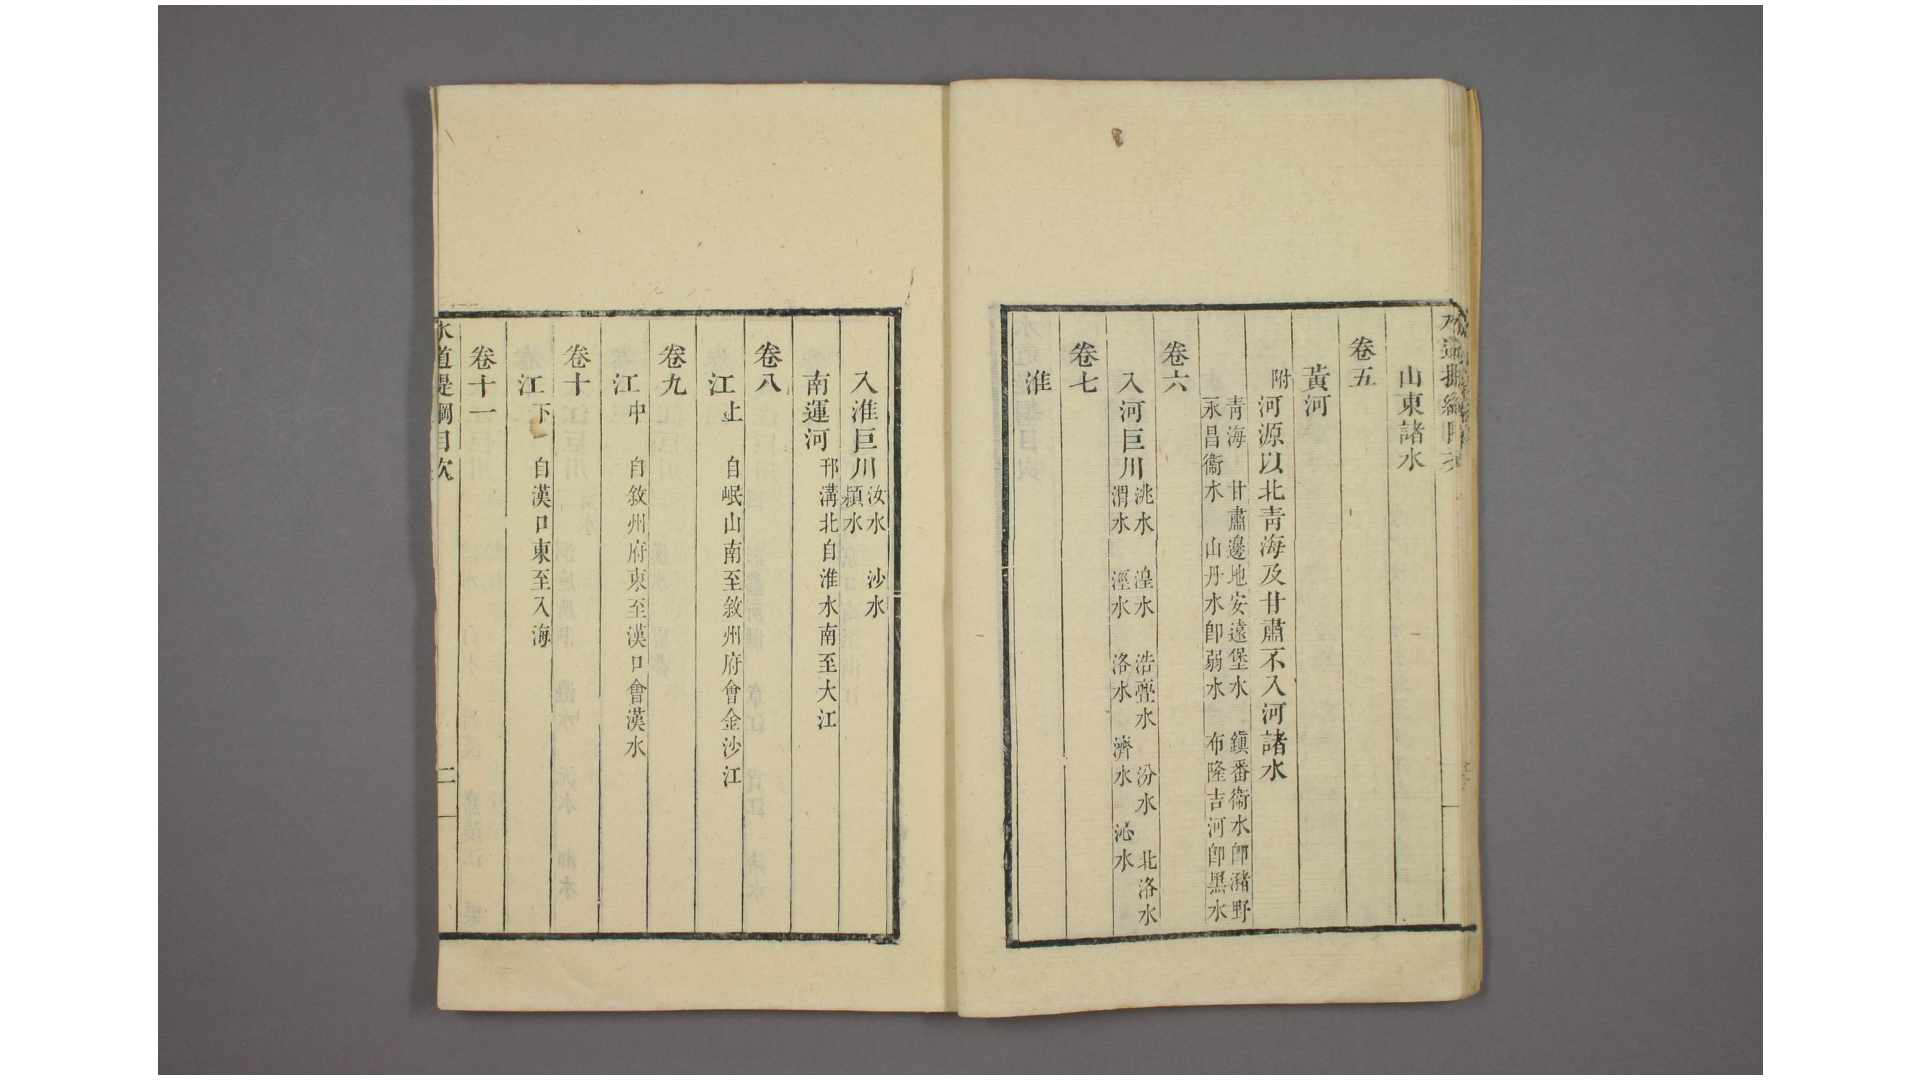 水道提綱目次
山東諸水
卷五
黃河
附河源以北青海及甘肅不入河諸水
青海 甘肅邊地安遠堡水 鎭番衞水卽瀦野
永昌衞水 山丹水卽弱水 布隆吉河卽黑水
卷六
入河巨川
洮水 湟水 浩亹水 汾水 北洛水
渭水 涇水 洛水 濟水 沁水
卷七
淮
入淮巨川
汝水 沙水
潁水
南運河 邗溝北自淮水南至大江
卷八
江 上 自岷山南至敘州府會金沙江
卷九
江 中 自敘州府東至漢口會漢水
卷十
江 下 自漢口東至入海
卷十一
水道提綱目次 二